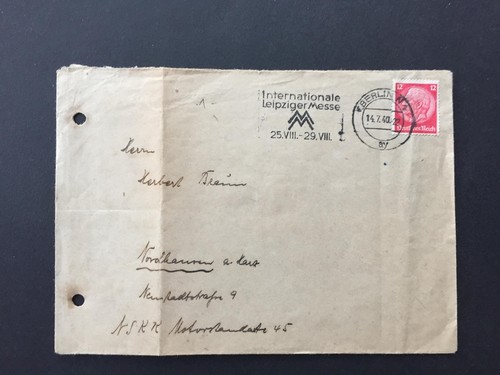 Internationale
Leipziger Messe
MM
25.VIII.-29.VIII.
BERLIN
14.7.40.
ay
12 12
Deutsches Reich
Herrn
Herbert Braun
Nordhausen a. Harz
Neustadtstraße 9
NSKK Motorstandarte 45